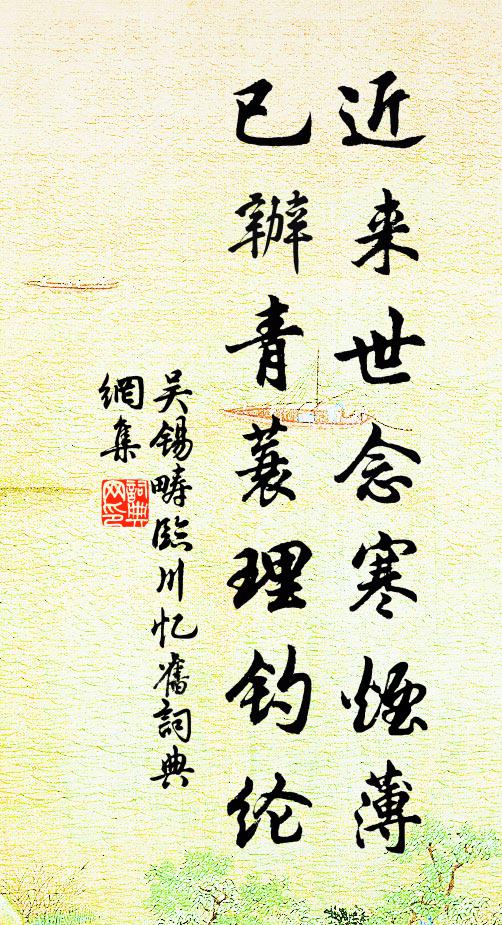 近来世念寒烟薄
已辦青蓑理钓纶
吴锡畴臨川忆舊詞典
網集
詞典网印